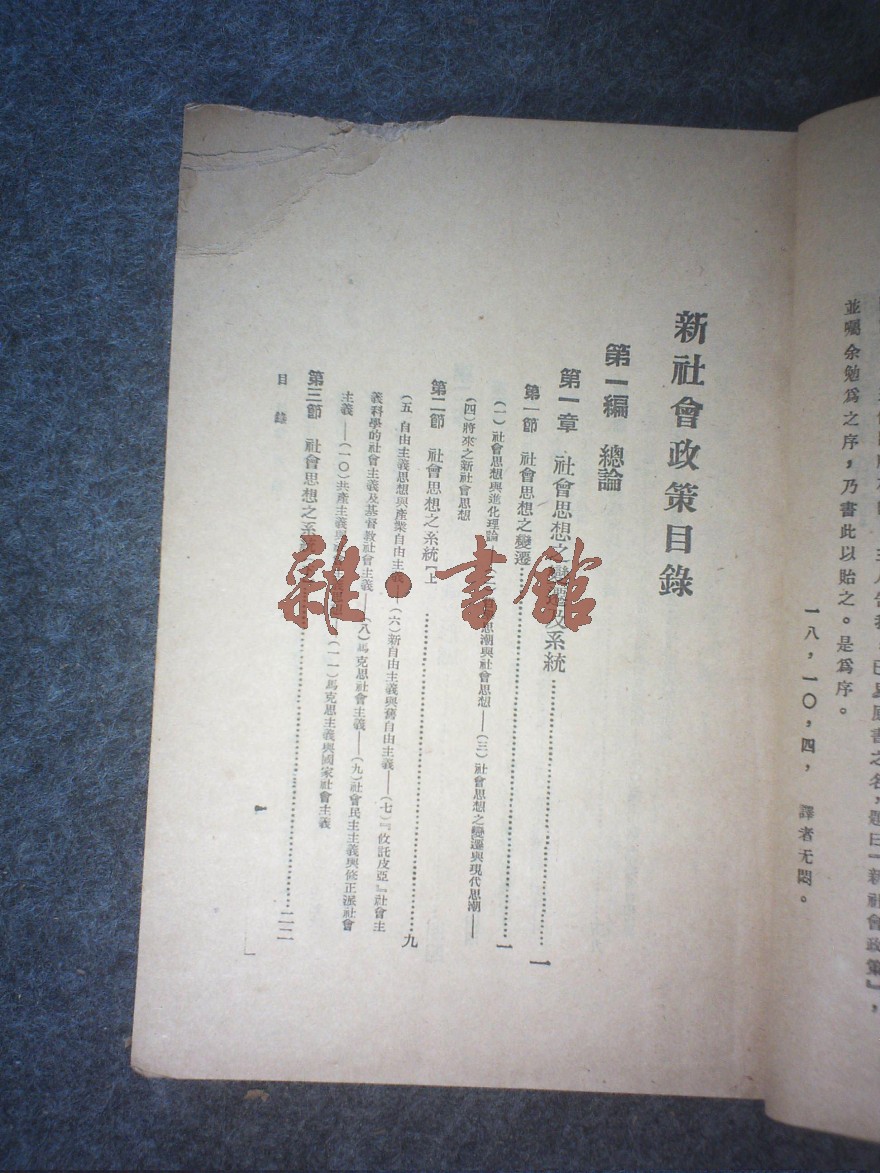 並囑余勉爲之序，乃書此以貽之。是爲序。
一八，一〇，四，　譯者无悶。
新社會政策目錄
第一編　總論
第一章　社會思想之變遷及系統……一
第一節　社會思想之變遷……一
（一）社會思想與進化理論——思潮與社會思想——（三）社會思想之變遷與現代思潮——
（四）將來之新社會思想
第二節　社會思想之系統［上……九
（五．自由主義思想與產業自由主義——（六）新自由主義與舊自由主義——（七）『攸託皮亞』社會主
義科學的社會主義及基督教社會主義——（八）馬克思社會主義——（九）社會民主主義與修正派社會
主義——（一〇）共產主義與——（一一）馬克思主義與國家社會主義
第三節　社會思想之系……二二
目　錄
一
雜·書館